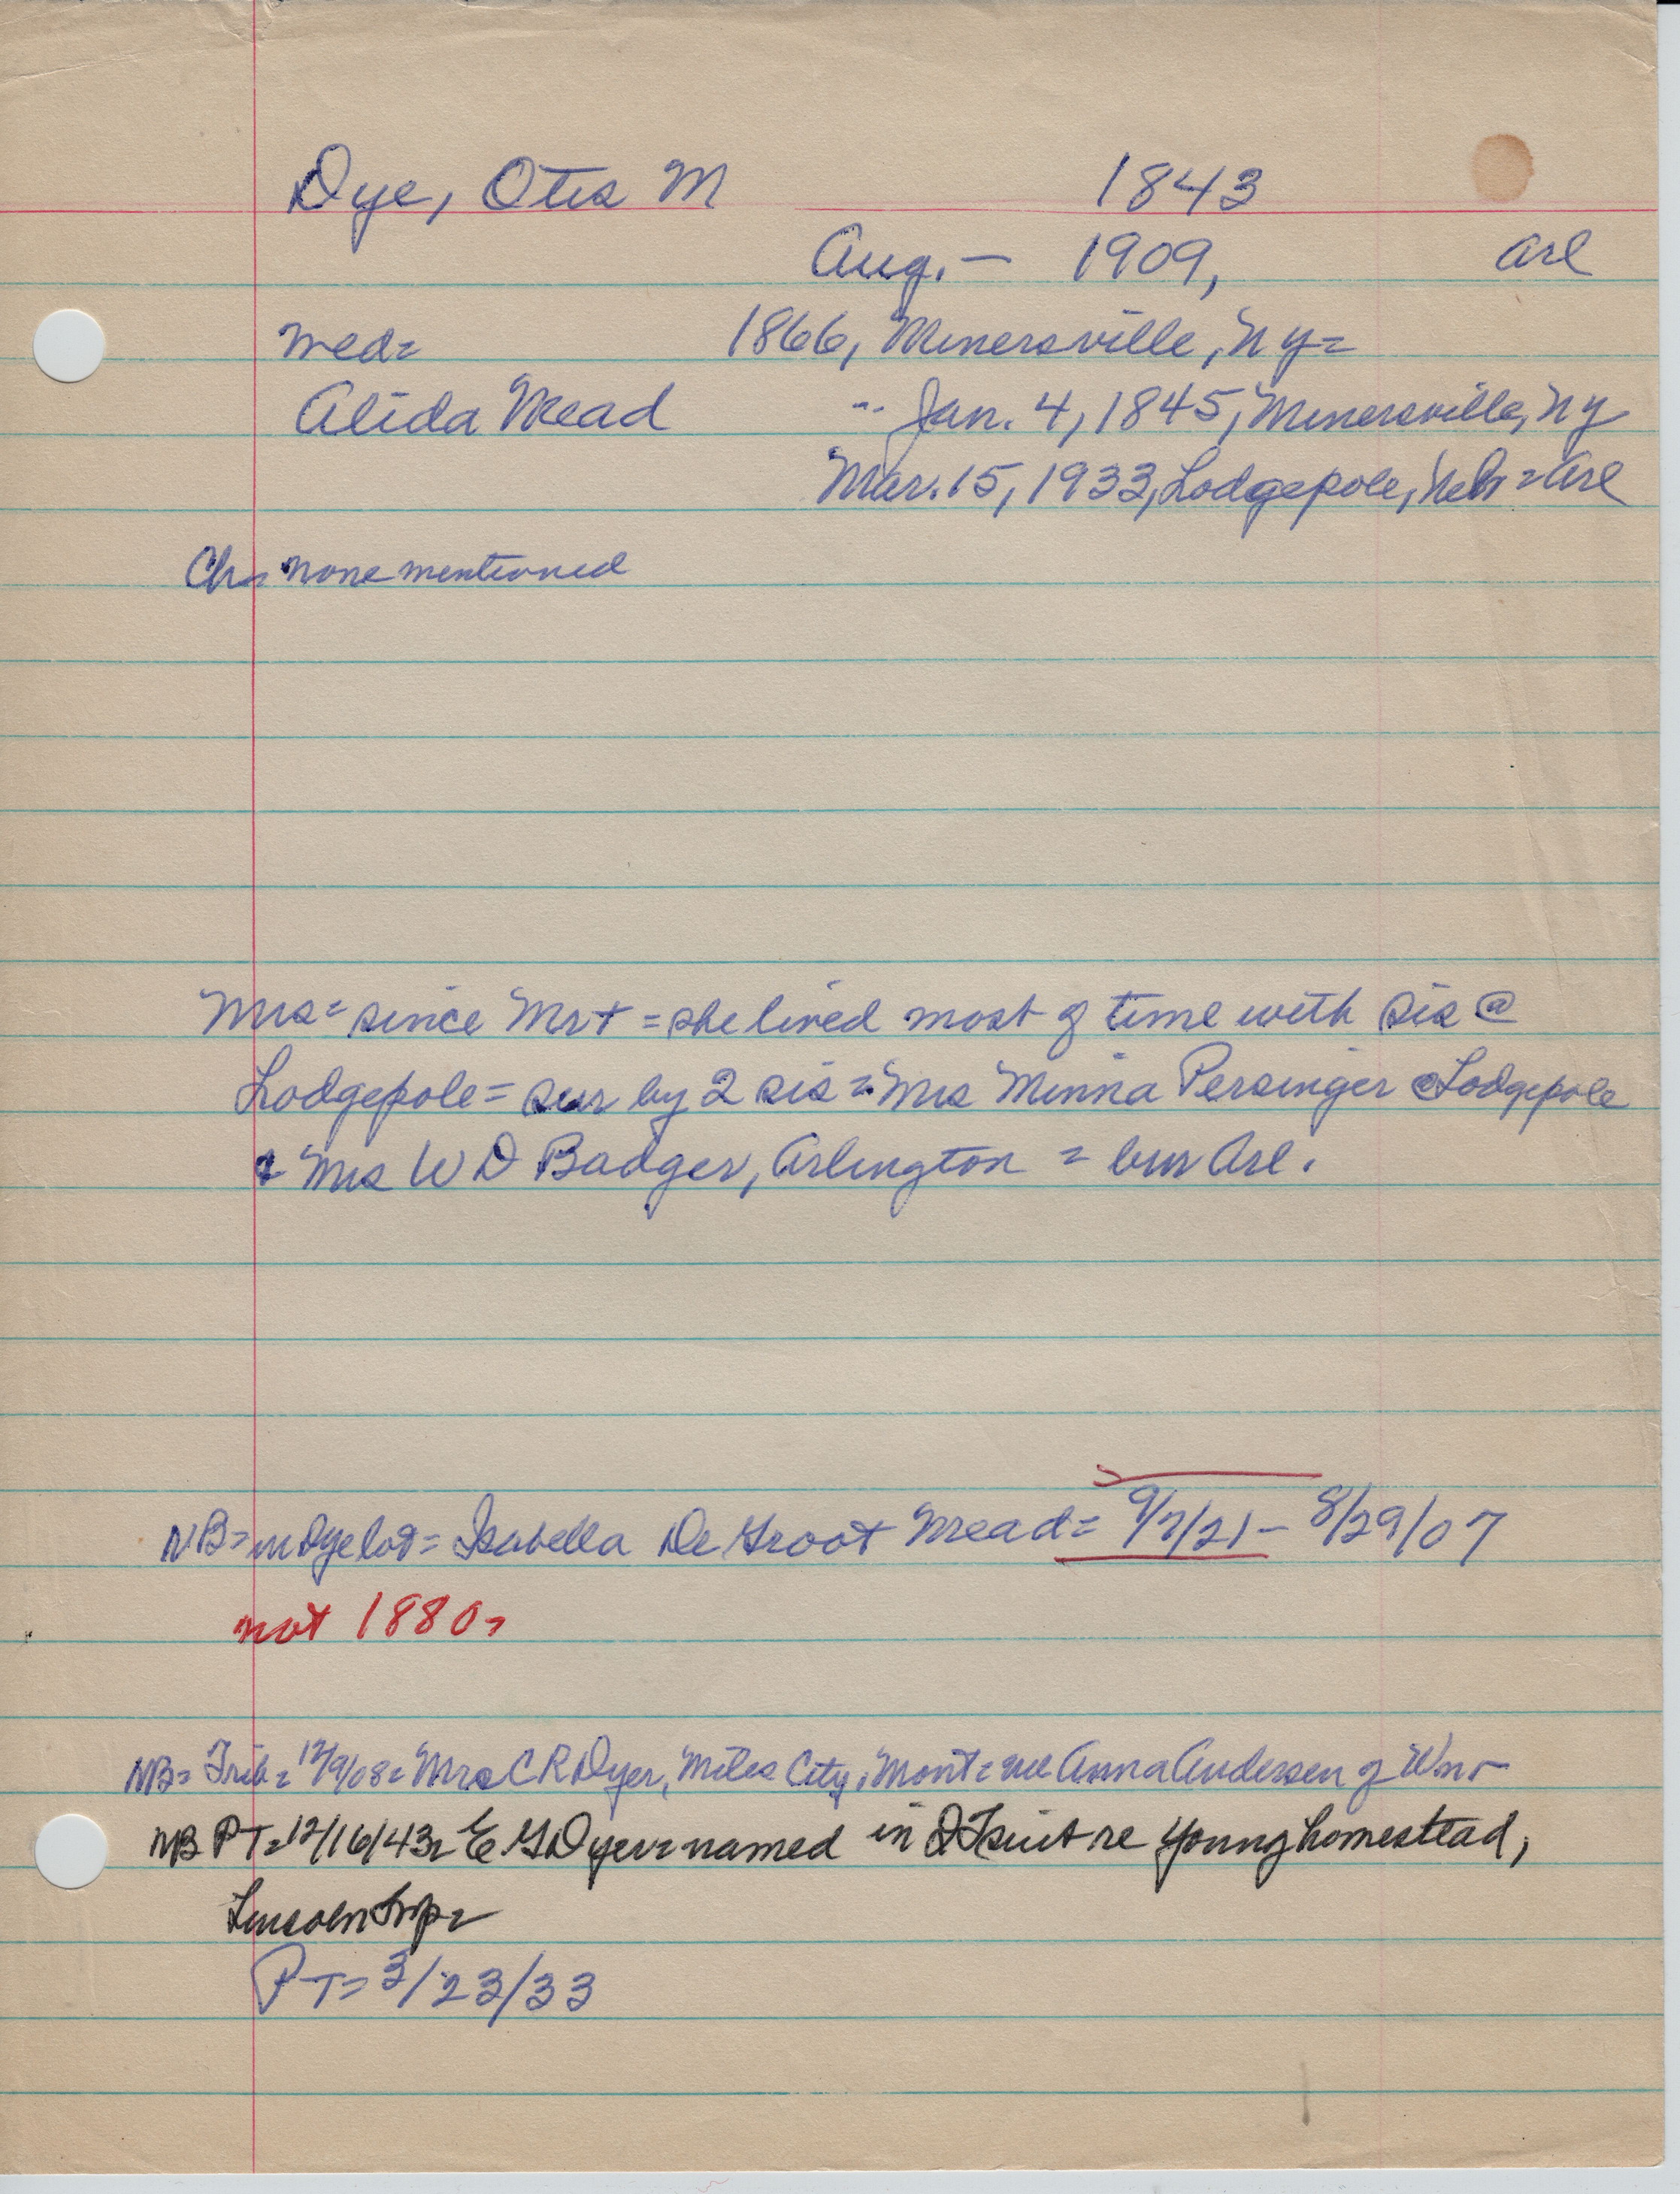 Dye, Otis M 1843
Aug. — 1909, Arl
wed= 1866, Minersville, Ny=
Alida Mead -- Jan. 4, 1845, Minersville, Ny
Mar. 15, 1933, Lodgepole, Neb = Arl
Ch= none mentioned
Mrs = since Mr + = she lived most of time with sis @
Lodgepole = sur by 2 sis = Mrs Minna Persinger @ Lodgepole
& Mrs W D Badger, Arlington = bur Arl.
NB= in Dye lot = Isabella De Groot Mead = 9/7/21 – 8/29/07
not 1880=
NB= Trib= 12/9/08= Mrs C R Dyer, Miles City, Mont = nee Anna Andersen of
NB PT=12/16/43= E G Dyer= named in suit re Young homestead,
Lincoln twp=
PT= 3/23/33